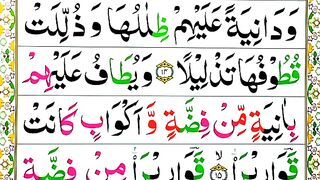 وَدَانِيَةً عَلَيْهِمْ ظِلٰلُهَا وَ ذُلِّلَتْ
قُطُوْفُهَا تَذْلِيْلًا ۝١٤ وَ يُطَافُ عَلَيْهِمْ
بِاٰنِيَةٍ مِّنْ فِضَّةٍ وَّ اَكْوَابٍ كَانَتْ
قَوَارِيْرَا۠ ۝١٥ قَوَارِيْرَا۠ مِنْ فِضَّةٍ